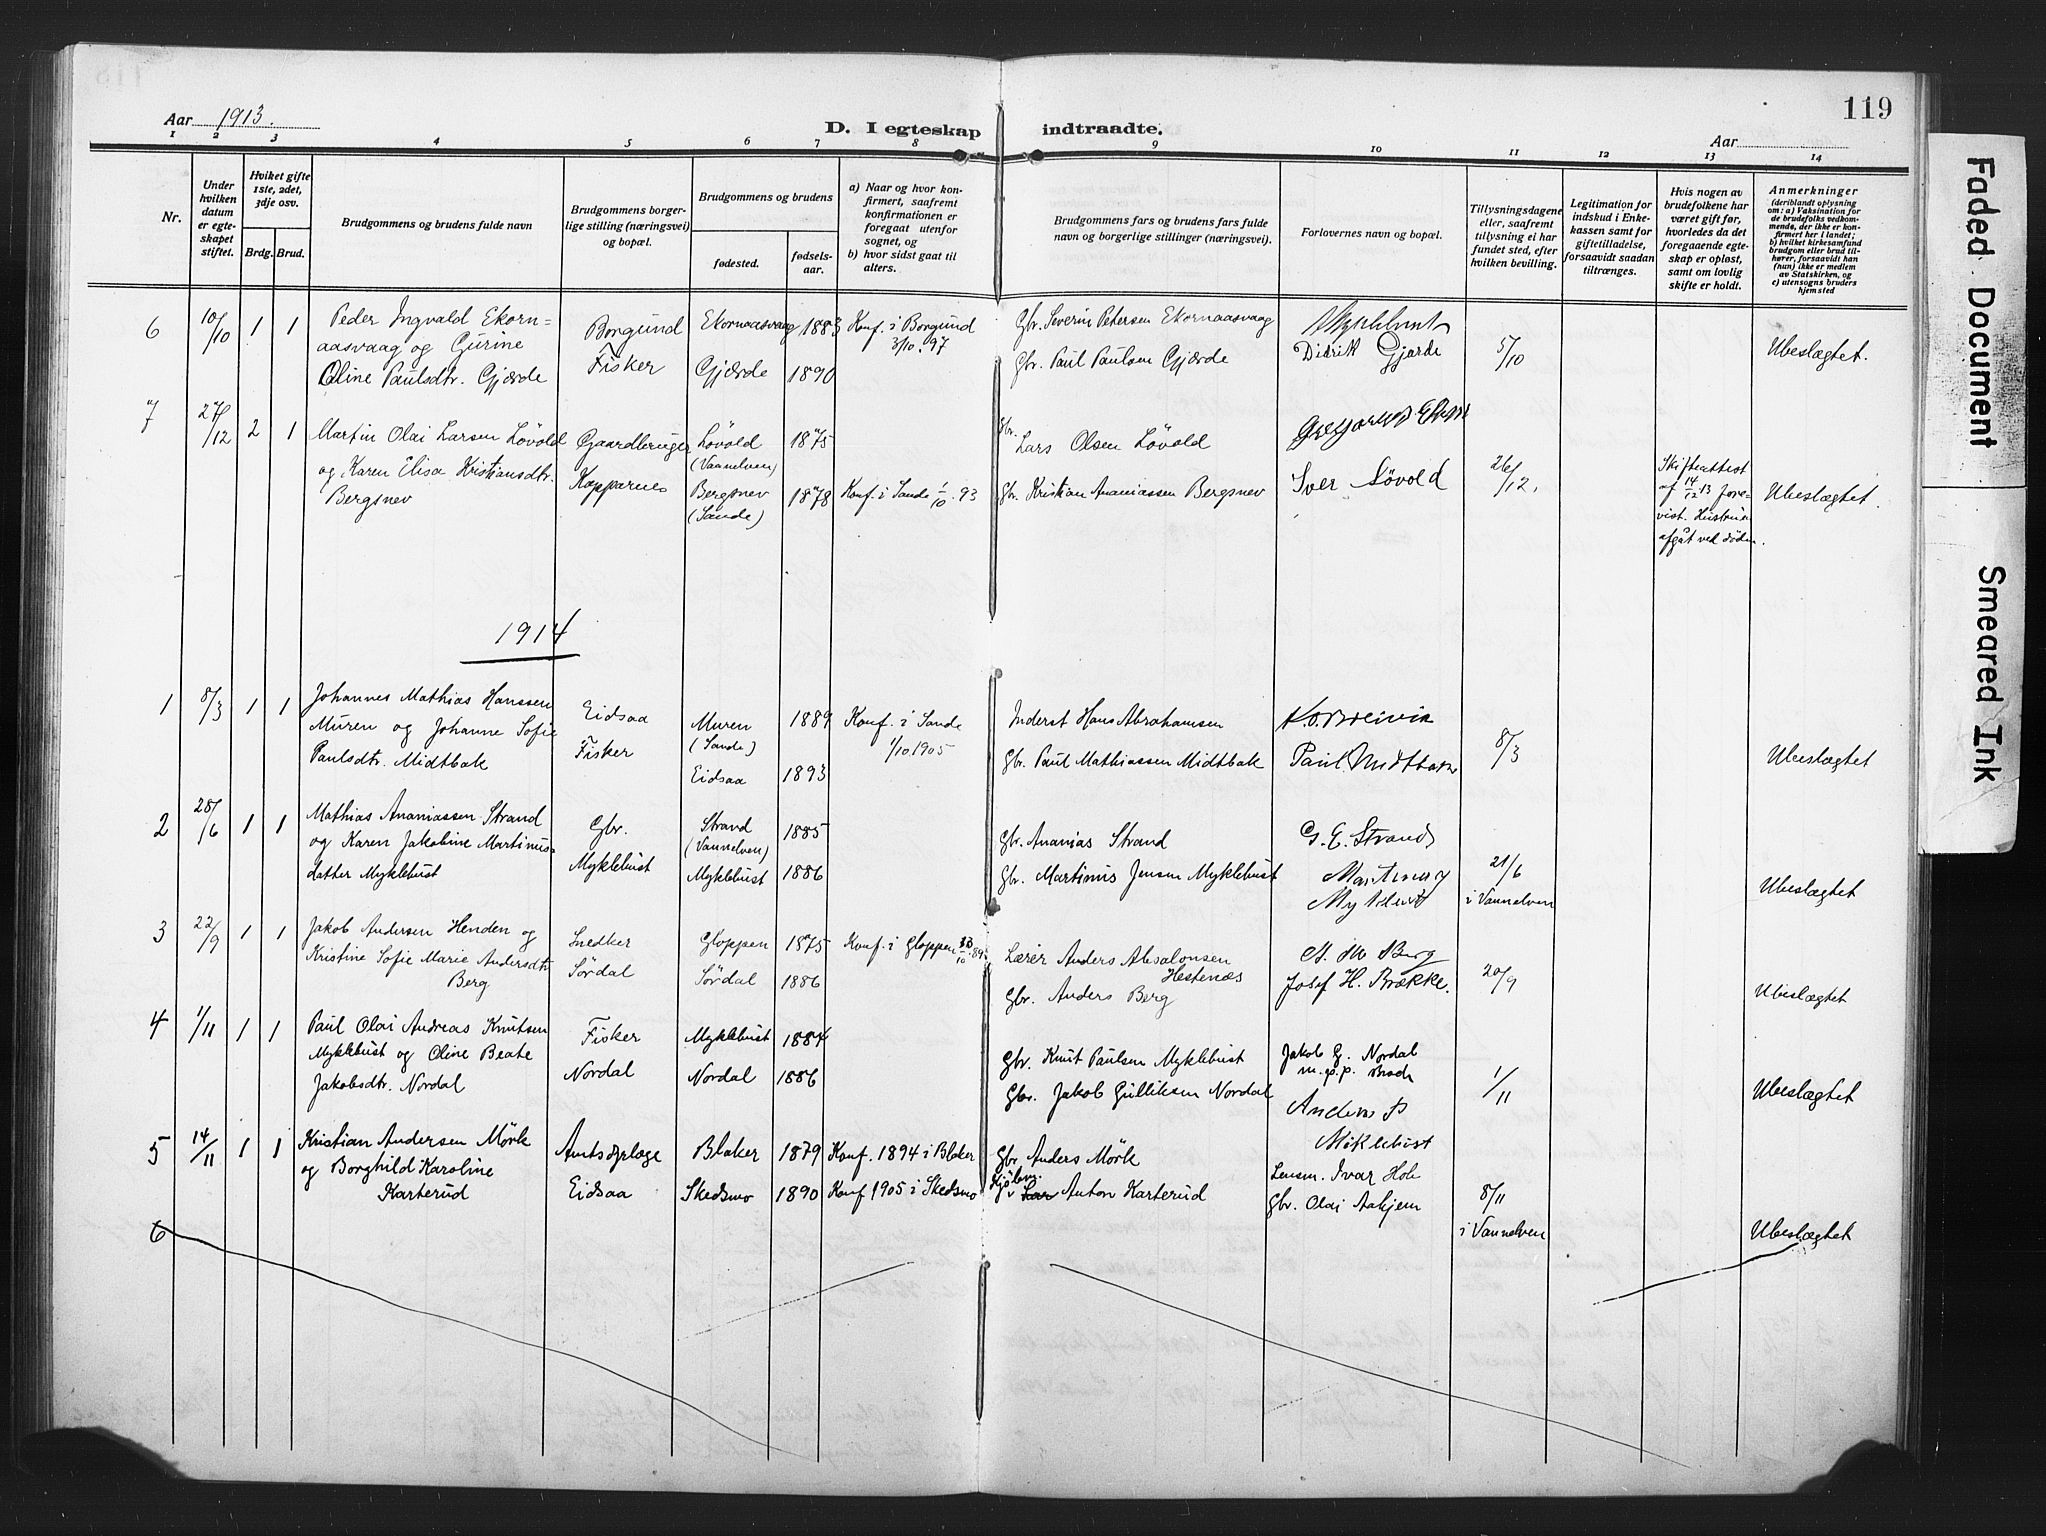 119
Aar 1913.
D. I egteskap indtraadte.
Aar
1 2 3 4 5 6 7 8 9 10 11 12 13 14
Nr.
Under hvilken datum er egteskapet stiftet.
Hviket gifte 1ste, 2det, 3dje osv.
Brdg. Brud.
Brudgommens og brudens fulde navn
Brudgommens borgerlige stilling (næringsvei) og bopæl.
Brudgommens og brudens
fødested.
fødselsaar.
a) Naar og hvor konfirmert, saafremt konfirmationen er foregaat utenfor sognet, og
b) hvor sidst gaat til alters.
Brudgommens fars og brudens fars fulde navn og borgerlige stillinger (næringsvei).
Forlovernes navn og bopæl.
Tillysningsdagene eller, saafremt tillysning ei har fundet sted, efter hvilken bevilling.
Legitimation for indskud i Enkekassen samt for giftetilladelse, forsaavidt saadan tiltrænges.
Hvis nogen av brudefolkene har været gift før, hvorledes da det foregaaende egteskap er opløst, samt om lovlig skifte er holdt.
Anmerkninger
(deriblandt oplysning om: a) Vaksination for de brudefolks vedkommende, der ikke er konfirmert her i landet;
b) hvilket kirkesamfund brudgom eller brud tilhører, forsaavidt han (hun) ikke er medlem av Statskirken, og
c) utensogns bruders hjemsted
6 10/10 1 1
Peder Ingvald Ekorn=
aasvaag og Gurine
Oline Paulsdtr. Gjærde
Borgund
Fisker
Ekornaasvaag 1883
Gjærde 1890
Konf. i Borgund
3/10. 97
Gbr. Severin Petersen Ekornaasvaag
Gbr. Paul Paulsen Gjærde
Didrik Gjærde
5/10
Ubeslægtet.
7 27/12 2 1
Martin Olai Larsen Løvold
og Karen Elisa Kristiansdtr.
Bergsnev
Gaardbruger
Kopparnes
Løvold 1875
(Vannelven)
Bergsnev 1878
(Sande)
Konf. i Sande 1/10. 93
Gbr. Lars Olsen Løvold
Gbr. Kristian Ananiassen Bergsnev
Iver Løvold
26/12.
Skifteattest
af 14/12 13 fore=
vist. Hustrun
afgåt ved døden.
Ubeslægtet.
1914
1 8/3 1 1
Johannes Mathias Hanssen
Muren og Johanne Sofie
Paulsdtr. Midtbak
Eidsaa
Fisker
Muren 1889
(Sande)
Eidsaa 1893
Konf. i Sande
1/10 1905
Inderst Hans Abrahamsen
Gbr. Paul Mathiassen Midtbak
K. O. Breivik
Paul Midtbak
8/3
Ubeslægtet
2 28/6 1 1
Mathias Ananiassen Strand
og Karen Jakobine Martinus=
datter Myklebust
Gbr.
Myklebust
Strand 1885
(Vannelven)
Myklebust 1886
Gbr. Ananias Strand
Gbr. Martinus Jensen Myklebust
G. E. Strand
Martinus
Myklebust
21/6
i Vannelven
Ubeslægtet
3 22/9 1 1
Jakob Andersen Henden og
Kristine Sofie Marie Andersdtr
Berg
Snedker
Sørdal
Gloppen 1875
Sørdal 1886
Konf. i Gloppen
Lærer Anders Absalonsen
Hestenæs
Gbr. Anders Berg
Berg
Josef H. Brække.
20/9
Ubeslægtet
4 1/11 1 1
Paul Olai Andreas Knutsen
Myklebust og Oline Beate
Jakobsdtr. Nordal
Fisker
Nordal
Myklebust 1884
Nordal 1886
Gbr. Knut Paulsen Myklebust
Gbr. Jakob Gulliksen Nordal
Jakob G. Nordal
m. p. p.
Anders P
Miklebust
1/11
Ubeslægtet
5 14/11 1 1
Kristian Andersen Mörk
og Borghild Karoline
Karterud
Amtsdyrlæge
Eidsaa
Blaker 1879
Skedsmo 1890
Konf. 1894 i Blaker
Konf 1905 i Skedsmo
Gbr Anders Mörk
Anton Karterud
Lensm. Ivar Hole
Gbr. Olai Aahjem
8/11
i Vannelven
Ubeslægtet
6
Faded Document
Smeared Ink